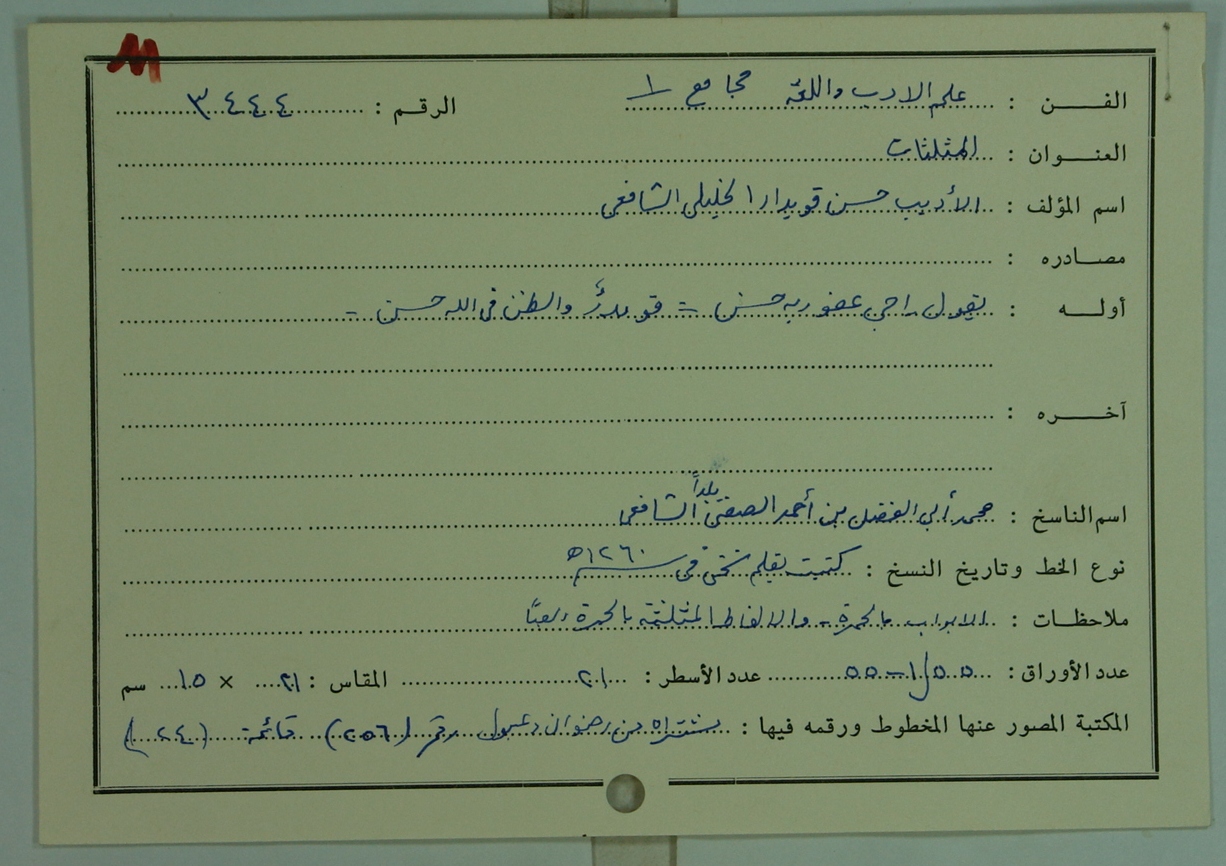 M
الفـن : علم الادب واللغة مجاميع ١ الرقم : ٣٤٤٤
العنـوان : المثلثات
اسم المؤلف : الأديب حسن قويدار الخليلي الشافعي
مصادره :
أولـه : يقول راجي عفو ربه حسن = قويدرٌ والظن في الله حسن =
آخـره :
اسم الناسخ : محمد أبي الفضل بن أحمد الصفتي بلداً الشافعي
نوع الخط وتاريخ النسخ : كتبت بقلم نسخي في سنة ١٢٦٠ه
ملاحظـات : الابواب بالحمرة - والالفاظ المثلثة بالحمرة ايضاً
عدد الأوراق : ٥٥ ١ - ٥٥ عدد الأسطر : ٢١ المقاس : ٢١ × ١٥ سم
المكتبة المصور عنها المخطوط ورقمه فيها : مشتراه من رضوان دعبول رقم (٢٥٦) قائمة (٢٤)